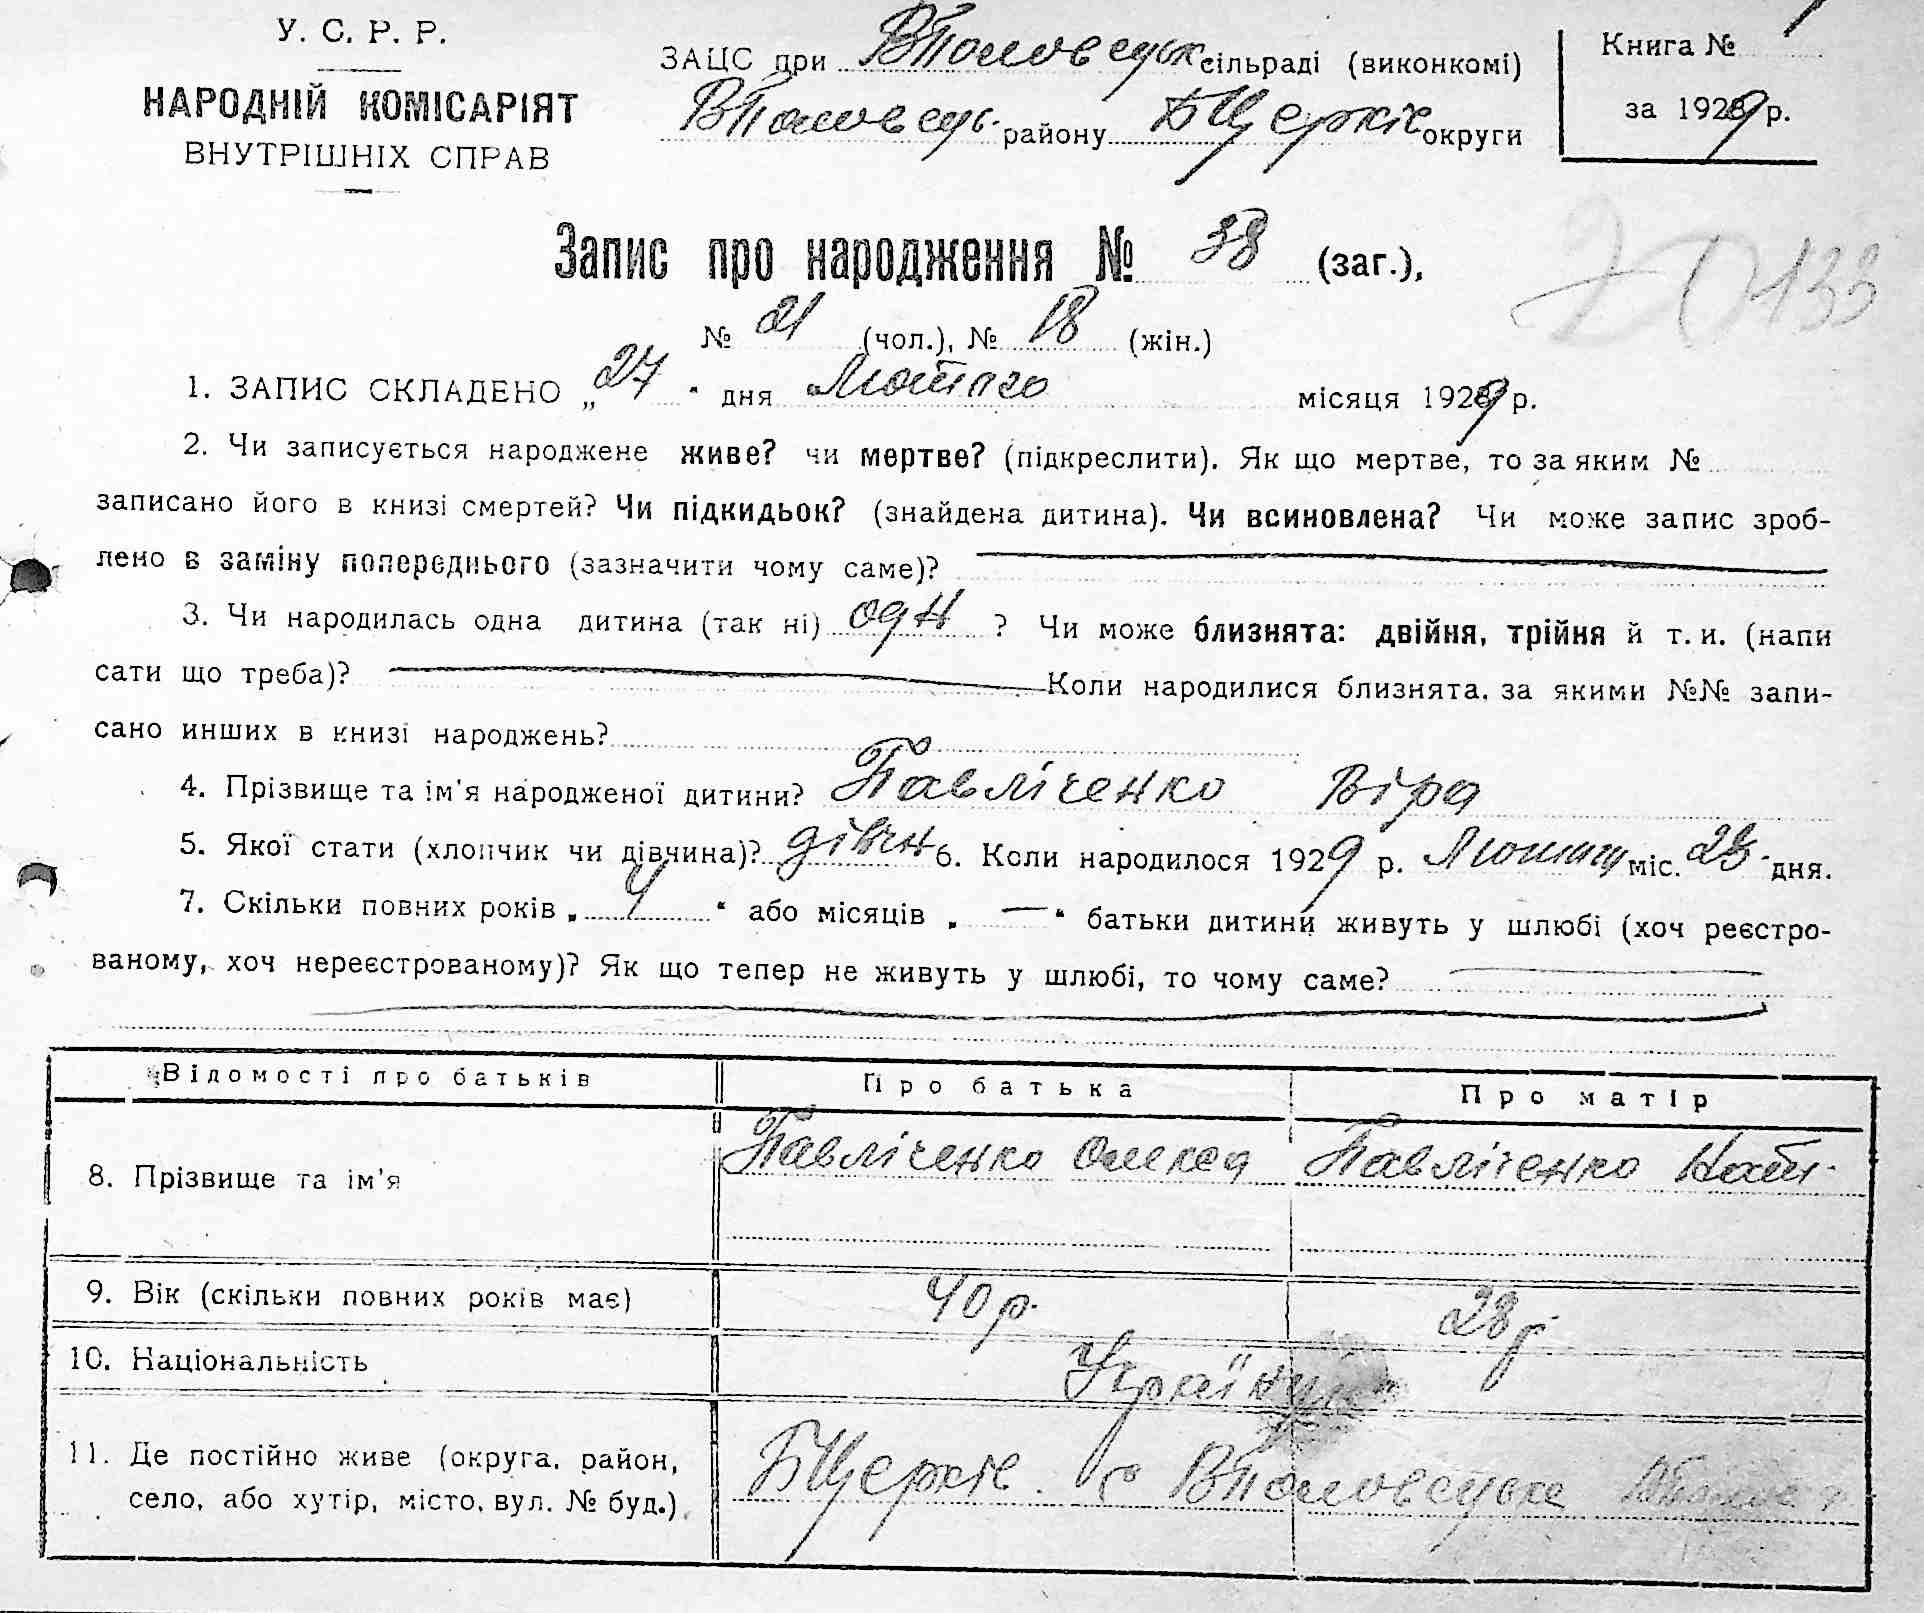 У. С. Р. Р.
НАРОДНІЙ КОМІСАРІЯТ
ВНУТРІШНІХ СПРАВ
ЗАЦС при ВПоловецьк сільраді (виконкомі)
ВПоловець. району БЦерків округи
Книга №
за 1929 р.
Запис про народження № 38 (заг.),
№ 21 (чол.), № 18 (жін.)
133
1. ЗАПИС СКЛАДЕНО „27" дня Лютого місяця 1929 р.
2. Чи записується народжене живе? чи мертве? (підкреслити). Як що мертве, то за яким №
записано його в книзі смертей? Чи підкидьок? (знайдена дитина). Чи всиновлена? Чи може запис зроб-
лено в заміну попереднього (зазначити чому саме)?
3. Чи народилась одна дитина (так ні) одн ? Чи може близнята: двійня, трійня й т. и. (напи
сати що треба)? Коли народилися близнята, за якими №№ запи-
сано инших в книзі народжень?
4. Прізвище та ім'я народженої дитини? Павліченко Віра
5. Якої стати (хлопчик чи дівчина)? дівчн 6. Коли народилося 1929 р. міс. дня.
7. Скільки повних років „ 4 " або місяців „ — " батьки дитини живуть у шлюбі (хоч реєстро-
ваному, хоч нереєстрованому)? Як що тепер не живуть у шлюбі, то чому саме?
Відомості про батьків Про батька Про матір
8. Прізвище та ім'я Павліченко Олекса Павліченко Нат.
9. Вік (скільки повних років має) 40 р. 28 р.
10. Національність
11. Де постійно живе (округа, район,
село, або хутір, місто, вул. № буд.) БЦерків. с ВПоловецьке